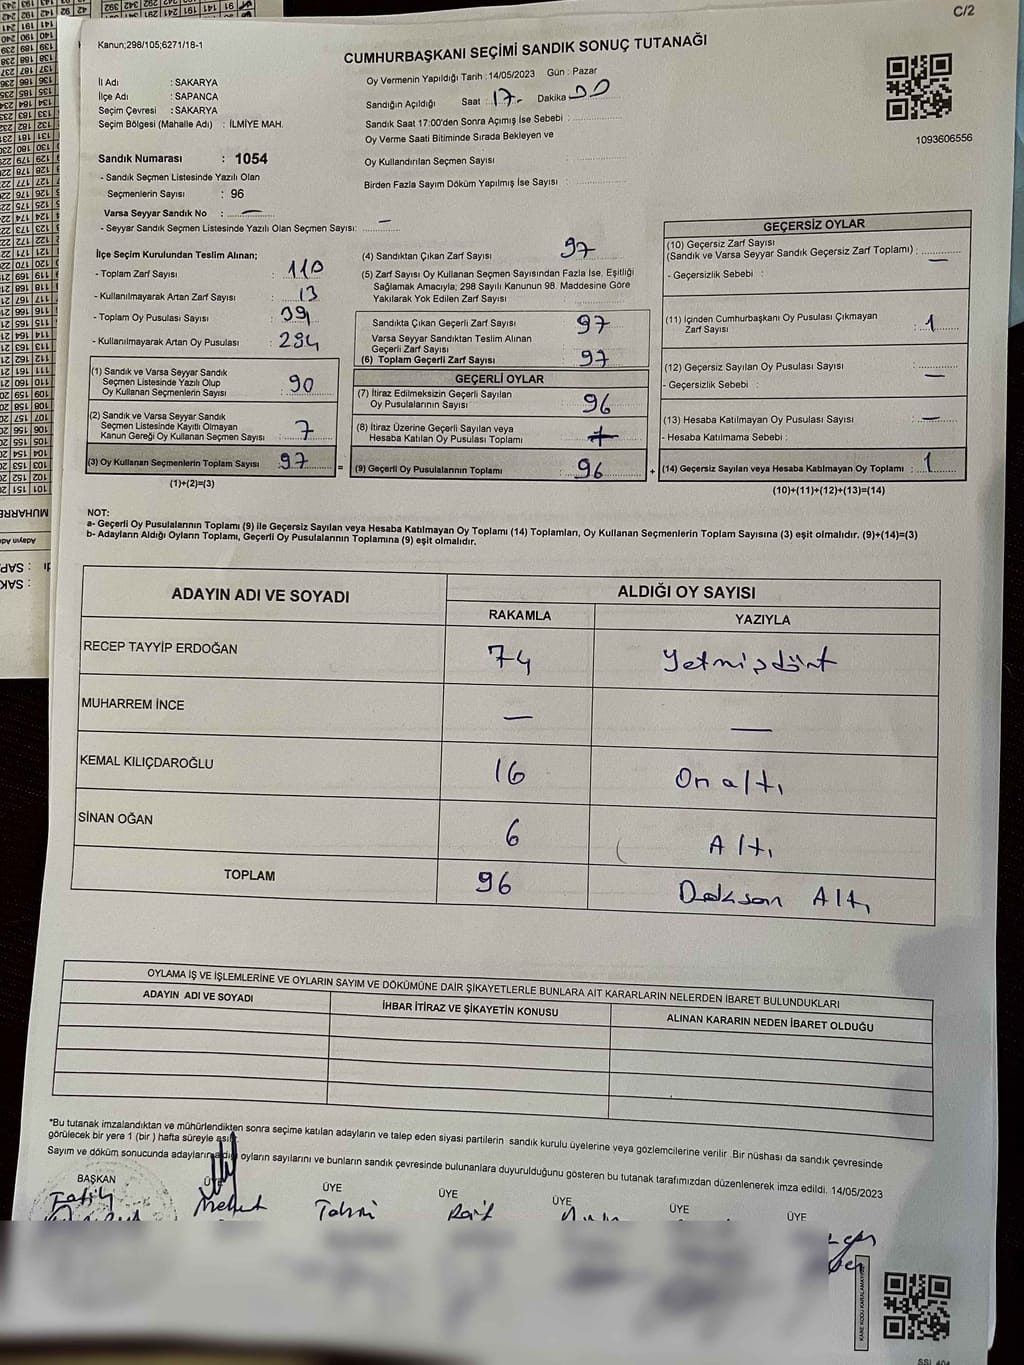 C/2
Kanun;298/105;6271/18-1
CUMHURBAŞKANI SEÇİMİ SANDIK SONUÇ TUTANAĞI
İl Adı : SAKARYA
İlçe Adı : SAPANCA
Seçim Çevresi : SAKARYA
Seçim Bölgesi (Mahalle Adı) : İLMİYE MAH.
Oy Vermenin Yapıldığı Tarih : 14/05/2023 Gün : Pazar
Sandığın Açıldığı Saat : 17 Dakika 00
Sandık Saat 17:00'den Sonra Açımış İse Sebebi :
Oy Verme Saati Bitiminde Sırada Bekleyen ve
Oy Kullandırılan Seçmen Sayısı :
Birden Fazla Sayım Döküm Yapılmış İse Sayısı :
1093606556
Sandık Numarası : 1054
- Sandık Seçmen Listesinde Yazılı Olan
Seçmenlerin Sayısı : 96
Varsa Seyyar Sandık No : —
- Seyyar Sandık Seçmen Listesinde Yazılı Olan Seçmen Sayısı: –
İlçe Seçim Kurulundan Teslim Alınan;
- Toplam Zarf Sayısı : 110
- Kullanılmayarak Artan Zarf Sayısı : 13
- Toplam Oy Pusulası Sayısı : 391
- Kullanılmayarak Artan Oy Pusulası : 294
(1) Sandık ve Varsa Seyyar Sandık
Seçmen Listesinde Yazılı Olup
Oy Kullanan Seçmenlerin Sayısı : 90
(2) Sandık ve Varsa Seyyar Sandık
Seçmen Listesinde Kayıtlı Olmayan
Kanun Gereği Oy Kullanan Seçmen Sayısı : 7
(3) Oy Kullanan Seçmenlerin Toplam Sayısı : 97
(1)+(2)=(3)
(4) Sandıktan Çıkan Zarf Sayısı : 97
(5) Zarf Sayısı Oy Kullanan Seçmen Sayısından Fazla İse, Eşitliği
Sağlamak Amacıyla; 298 Sayılı Kanunun 98. Maddesine Göre
Yakılarak Yok Edilen Zarf Sayısı :
Sandıkta Çıkan Geçerli Zarf Sayısı : 97
Varsa Seyyar Sandıktan Teslim Alınan
Geçerli Zarf Sayısı :
(6) Toplam Geçerli Zarf Sayısı : 97
GEÇERLİ OYLAR
(7) İtiraz Edilmeksizin Geçerli Sayılan
Oy Pusulalarının Sayısı : 96
(8) İtiraz Üzerine Geçerli Sayılan veya
Hesaba Katılan Oy Pusulası Toplamı :
= (9) Geçerli Oy Pusulalarının Toplamı : 96
GEÇERSİZ OYLAR
(10) Geçersiz Zarf Sayısı
(Sandık ve Varsa Seyyar Sandık Geçersiz Zarf Toplamı) : —
- Geçersizlik Sebebi :
(11) İçinden Cumhurbaşkanı Oy Pusulası Çıkmayan
Zarf Sayısı : 1
(12) Geçersiz Sayılan Oy Pusulası Sayısı : —
- Geçersizlik Sebebi :
(13) Hesaba Katılmayan Oy Pusulası Sayısı : —
- Hesaba Katılmama Sebebi :
+ (14) Geçersiz Sayılan veya Hesaba Katılmayan Oy Toplamı : 1
(10)+(11)+(12)+(13)=(14)
NOT:
a- Geçerli Oy Pusulalarının Toplamı (9) ile Geçersiz Sayılan veya Hesaba Katılmayan Oy Toplamı (14) Toplamları, Oy Kullanan Seçmenlerin Toplam Sayısına (3) eşit olmalıdır. (9)+(14)=(3)
b- Adayların Aldığı Oyların Toplamı, Geçerli Oy Pusulalarının Toplamına (9) eşit olmalıdır.
ADAYIN ADI VE SOYADI ALDIĞI OY SAYISI
RAKAMLA YAZIYLA
RECEP TAYYİP ERDOĞAN 74 Yetmişdört
MUHARREM İNCE — —
KEMAL KILIÇDAROĞLU 16 On altı
SİNAN OĞAN 6 Altı
TOPLAM 96 Doksan Altı
OYLAMA İŞ VE İŞLEMLERİNE VE OYLARIN SAYIM VE DÖKÜMÜNE DAİR ŞİKAYETLERLE BUNLARA AİT KARARLARIN NELERDEN İBARET BULUNDUKLARI
ADAYIN ADI VE SOYADI İHBAR İTİRAZ VE ŞİKAYETİN KONUSU ALINAN KARARIN NEDEN İBARET OLDUĞU
*Bu tutanak imzalandıktan ve mühürlendikten sonra seçime katılan adayların ve talep eden siyasi partilerin sandık kurulu üyelerine veya gözlemcilerine verilir .Bir nüshası da sandık çevresinde
görülecek bir yere 1 (bir ) hafta süreyle asılır.
Sayım ve döküm sonucunda adayların aldığı oyların sayılarını ve bunların sandık çevresinde bulunanlara duyurulduğunu gösteren bu tutanak tarafımızdan düzenlenerek imza edildi. 14/05/2023
BAŞKAN ÜYE ÜYE ÜYE ÜYE ÜYE ÜYE
Fatih Mehmet Raif